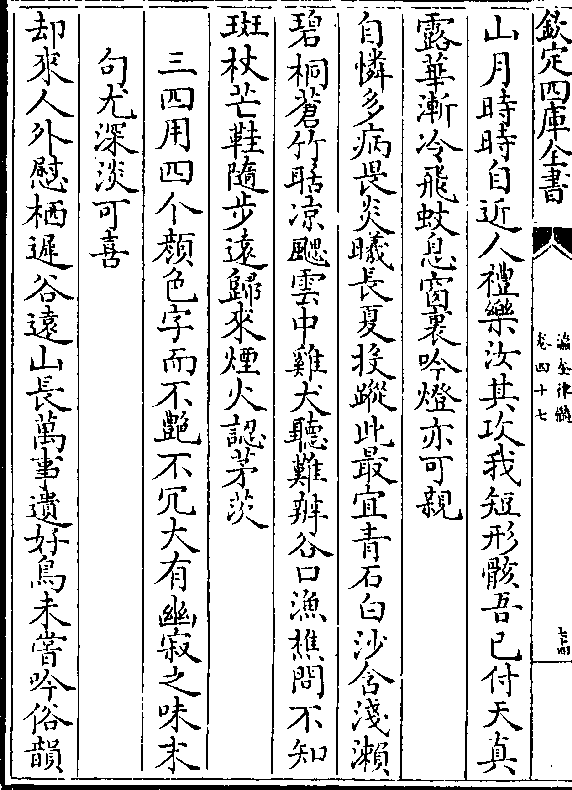 欽定四庫全書
瀛奎律髓
卷四十七
山月時時自近人禮樂汝其攻我短形骸吾已付天真
露華漸冷飛蚊息窗裏吟燈亦可親
自憐多病畏炎曦長夏投蹤此最宜青石白沙含淺瀨
碧桐蒼竹聒凉颸雲中雞犬聽難辨谷口漁樵問不知
斑杖芒鞋隨步遠歸來煙火認茅茨
三四用四个顔色字而不艶不冗大有幽寂之味末
句尤深淡可喜
却來人外慰栖遲谷遠山長萬事遺好鳥未嘗吟俗韻